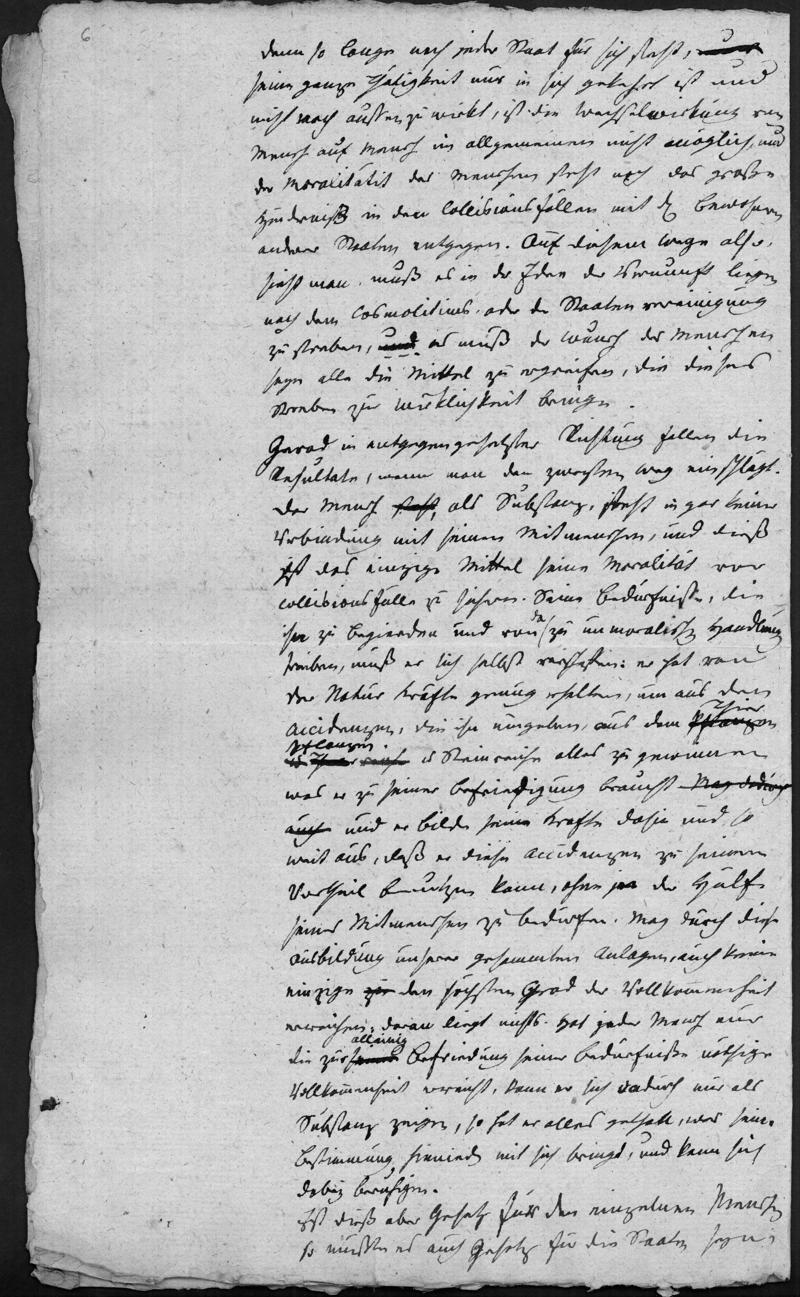 6
denn so lange noch jeder Staat für sich steht,
seine ganze Thätigkeit nur in sich gekehrt ist und
nicht nach aussen zu wirkt, ist die Wechselwirkung von
Mensch auf Mensch im allgemeinen nicht möglich, und
der Moralität des Menschen steht noch das große
Hinderniß in den Collisionsfällen mit den Bewohnern
anderer Staaten entgegen. Auf diesem Wege also,
sieht man, muß es in der Idee der Vernunft liegen
nach dem Cosmolitimus, oder der Staaten vereinigung
zu streben, und es muß der Wunsch des Menschen
seyn alle die Mittel zu ergreifen, die dieses
Streben zur Wirklichkeit bringen.
Gerad in entgegengesetzter Richtung fallen die
Resultate, wenn man den zweyten Weg einschlägt.
Der Mensch steht, als Substanz, steht in gar keiner
Verbindung mit seinen Mitmenschen, und dieß
ist das einzige Mittel seine Moralität vor
Collisionsfälle zu sichern. Seine Bedürfnisse, die
ihn zu Begierden und von da zu unmoralischen Handlungen
treiben, muß er sich selbst verschaffen: er hat von
der Natur Kräfte genug erhalten, um aus den
Accidenzen, die ihn umgeben, aus dem Thier
Pflanzen
Pflanzen. u Steinreiche alles zu gewinnen
was er zu seiner Befriedigung braucht Mag dadurch
auch und er bilde seine Kräfte dahin und so
weit aus, daß er diese Accidenzen zu seinem
Vortheil benutzen kann, ohne je der Hülfe
seiner Mitmenschen zu bedürfen. Mag durch diese
Ausbildung unserer gesammten Anlagen, auch keine
einzige zur den höchsten Grad der Vollkommenheit
erreichen; daran liegt nichts. Hat jeder Mensch nur
alleinig
die zur Befriedung seiner Bedürfnisse nöthige
Vollkommenheit erreicht, kann er sich dadurch nur als
Substanz zeigen, so hat er alles gethan, was seine
Bestimmung hienieden mit sich bringt, und kann sich
dabey beruhigen.
Ist dieß aber Gesetz für den einzelnen Menschen
so müßte es auch Gesetz für die Staaten seyn: